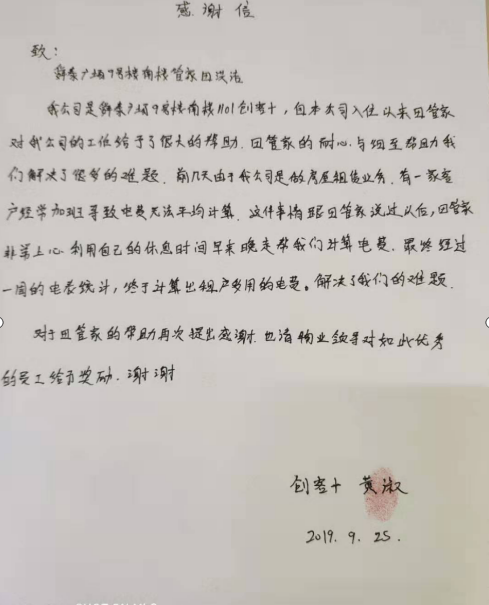 感谢信
致：
广场9号楼南楼管家田
我公司是 广场9号楼南楼1101创客+，自本公司入住以来田管家
对我公司的工作给于了很大的帮助．田管家的耐心与细至帮助我
们解决了很多的难题．前几天由于我公司是做房屋租赁业务．有一家客
户经常加班导致电费无法平均计算．这件事情跟田管家说过以后，田管家
非常上心．利用自己的休息时间早来晚走帮我们计算电费．最终经过
一周的电表统计，终于计算出租户多用的电费。解决了我们的难题．
对于田管家的帮助再次提出感谢．也请物业领导对如此优秀
的员工给于奖励．谢谢
创客+ 黄淑
2019．9．25．